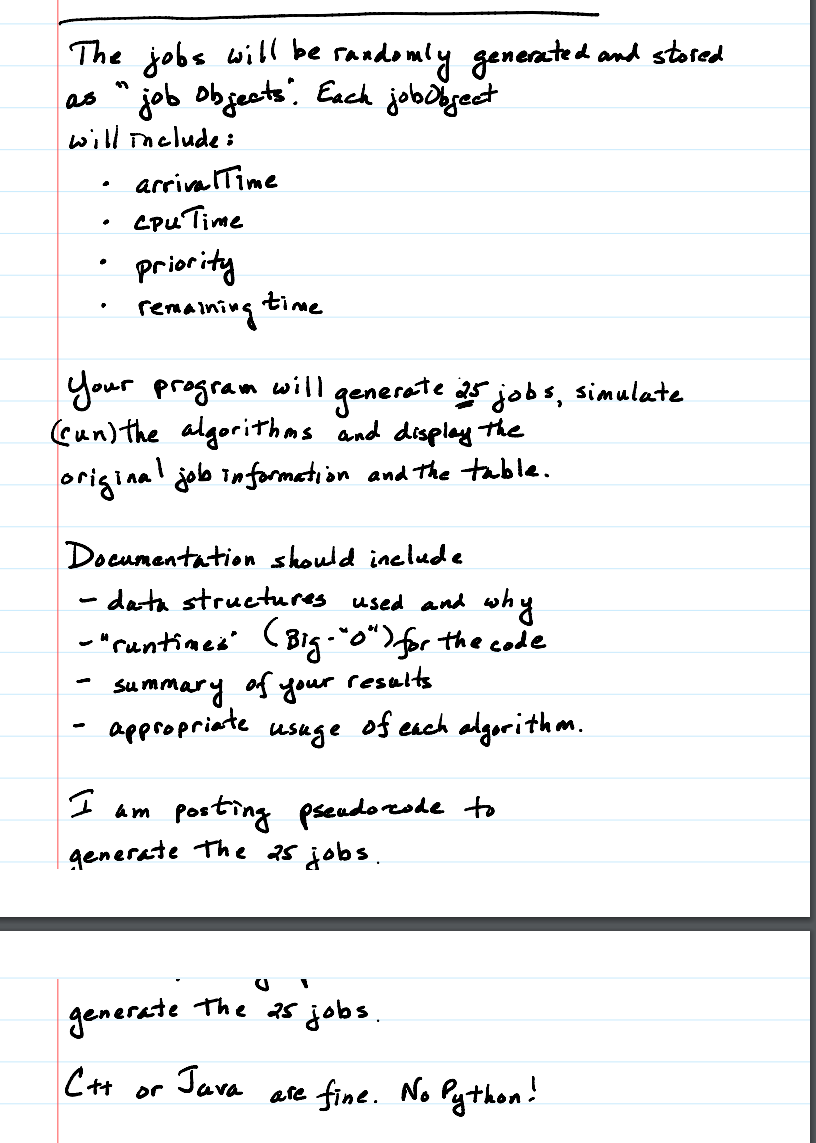 The jobs will be randomly generated and stored
as "job Objects". Each jobObject
will include:
• arrivalTime
• cpuTime
• priority
• remaining time
Your program will generate 25 jobs, simulate
(run) the algorithms and display the
original job information and the table.
Documentation should include
- data structures used and why
- "runtimes" (Big-"O") for the code
- summary of your results
- appropriate usage of each algorithm.
I am posting pseudocode to
generate the 25 jobs.
generate the 25 jobs.
C++ or Java are fine. No Python!